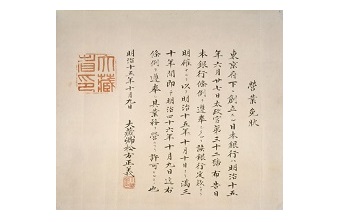 營業免狀
東京府下ニ創立スル日本銀行ハ明治十五
年六月廿七日太政官第三十二號布告日
本銀行條例ヲ遵奉シ
明治十五年十月十日ヨリ滿三
十年間即チ明治四十五年十月九日迄右
條例ヲ遵奉シ其業務ヲ營ムヲ許可スル也
明治十五年十月九日
大藏卿松方正義
大藏省印